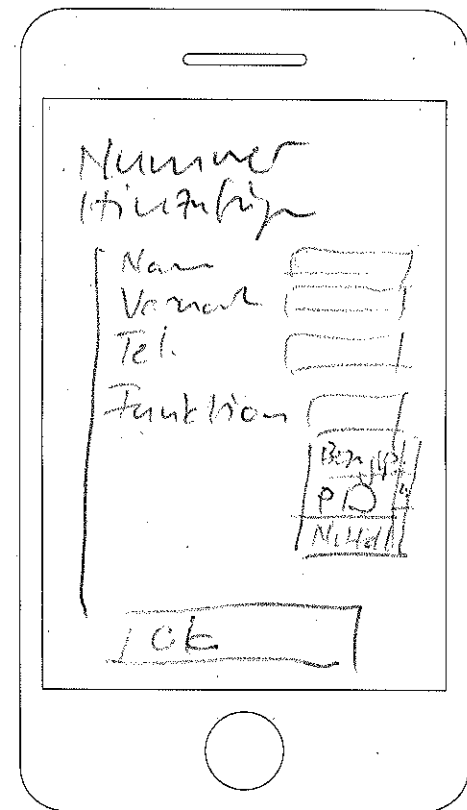 Nummer
Hinzufügen
Name
Vorname
Tel.
Funktion
OK